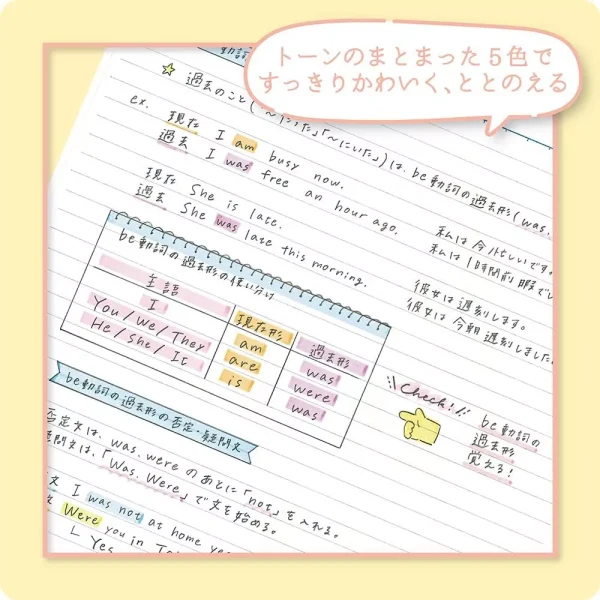 トーンのまとまった5色で
すっきりかわいく、ととのえる
動詞
☆ 過去のこと(「~だった」「~にいた」)は、be動詞の過去形(was,
ex. 現在 I am busy now.
過去 I was free an hour ago.
現在 She is late.
過去 She was late this morning.
私は今忙しいです。
私は1時間前暇でし
彼女は遅刻します。
彼女は今朝遅刻しました。
be動詞の過去形の使い分け
主語 現在形 過去形
I am was
You/We/They are were
He/She/It is was
Check!!
be動詞の
過去形
覚える!
be動詞の過去形の否定・疑問文
否定文は、was, were のあとに「not」を入れる。
疑問文は、「Was, Were」で文を始める。
文 I was not at home ye
文 Were you in To
└ Yes